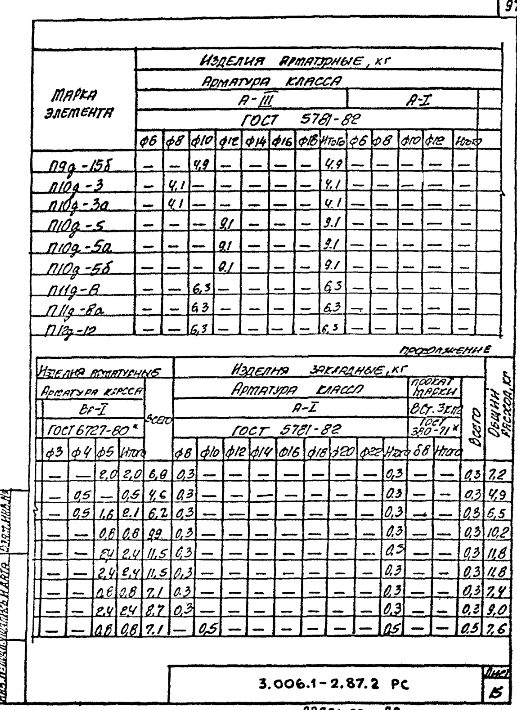 Изделия арматурные, кг
Марка элемента
Арматура класса
А-III А-I
ГОСТ 5781-82
ф6 ф8 ф10 ф12 ф14 ф16 ф18 Итого ф6 ф8 ф10 ф12 Итого
П9д-15б — — 4,9 — — — — 4,9 — — — — —
П10д-3 — 4,1 — — — — — 4,1 — — — — —
П10д-3а — 4,1 — — — — — 4,1 — — — — —
П10д-5 — — — 9,1 — — — 9,1 — — — — —
П10д-5а — — — 9,1 — — — 9,1 — — — — —
П10д-5б — — — 9,1 — — — 9,1 — — — — —
П11д-8 — — 6,3 — — — — 6,3 — — — — —
П11д-8а — — 6,3 — — — — 6,3 — — — — —
П12д-12 — — 6,3 — — — — 6,3 — — — — —
продолжение
Изделия арматурные Изделия закладные, кг
Арматура класса Арматура класса Прокат марки
Вр-I Всего А-I ВСт.3кп2 Всего Общий расход, кг
ГОСТ 6727-80* ГОСТ 5781-82 ГОСТ 380-71*
ф3 ф4 ф5 Итого ф8 ф10 ф12 ф14 ф16 ф18 ф20 ф22 Итого δ8 Итого
— — 2,0 2,0 6,9 0,3 — — — — — — — 0,3 — — 0,3 7,2
— 0,5 — 0,5 4,6 0,3 — — — — — — — 0,3 — — 0,3 4,9
— 0,5 1,6 2,1 6,2 0,3 — — — — — — — 0,3 — — 0,3 6,5
— — 0,8 0,8 9,9 0,3 — — — — — — — 0,3 — — 0,3 10,2
— — 2,4 2,4 11,5 0,3 — — — — — — — 0,3 — — 0,3 11,8
— — 2,4 2,4 11,5 0,3 — — — — — — — 0,3 — — 0,3 11,8
— — 0,8 0,8 7,1 0,3 — — — — — — — 0,3 — — 0,3 7,4
— — 2,4 2,4 8,7 0,3 — — — — — — — 0,3 — — 0,3 9,0
— — 0,8 0,8 7,1 — 0,5 — — — — — — 0,5 — — 0,5 7,6
3.006.1-2.87.2 РС
Лист
15